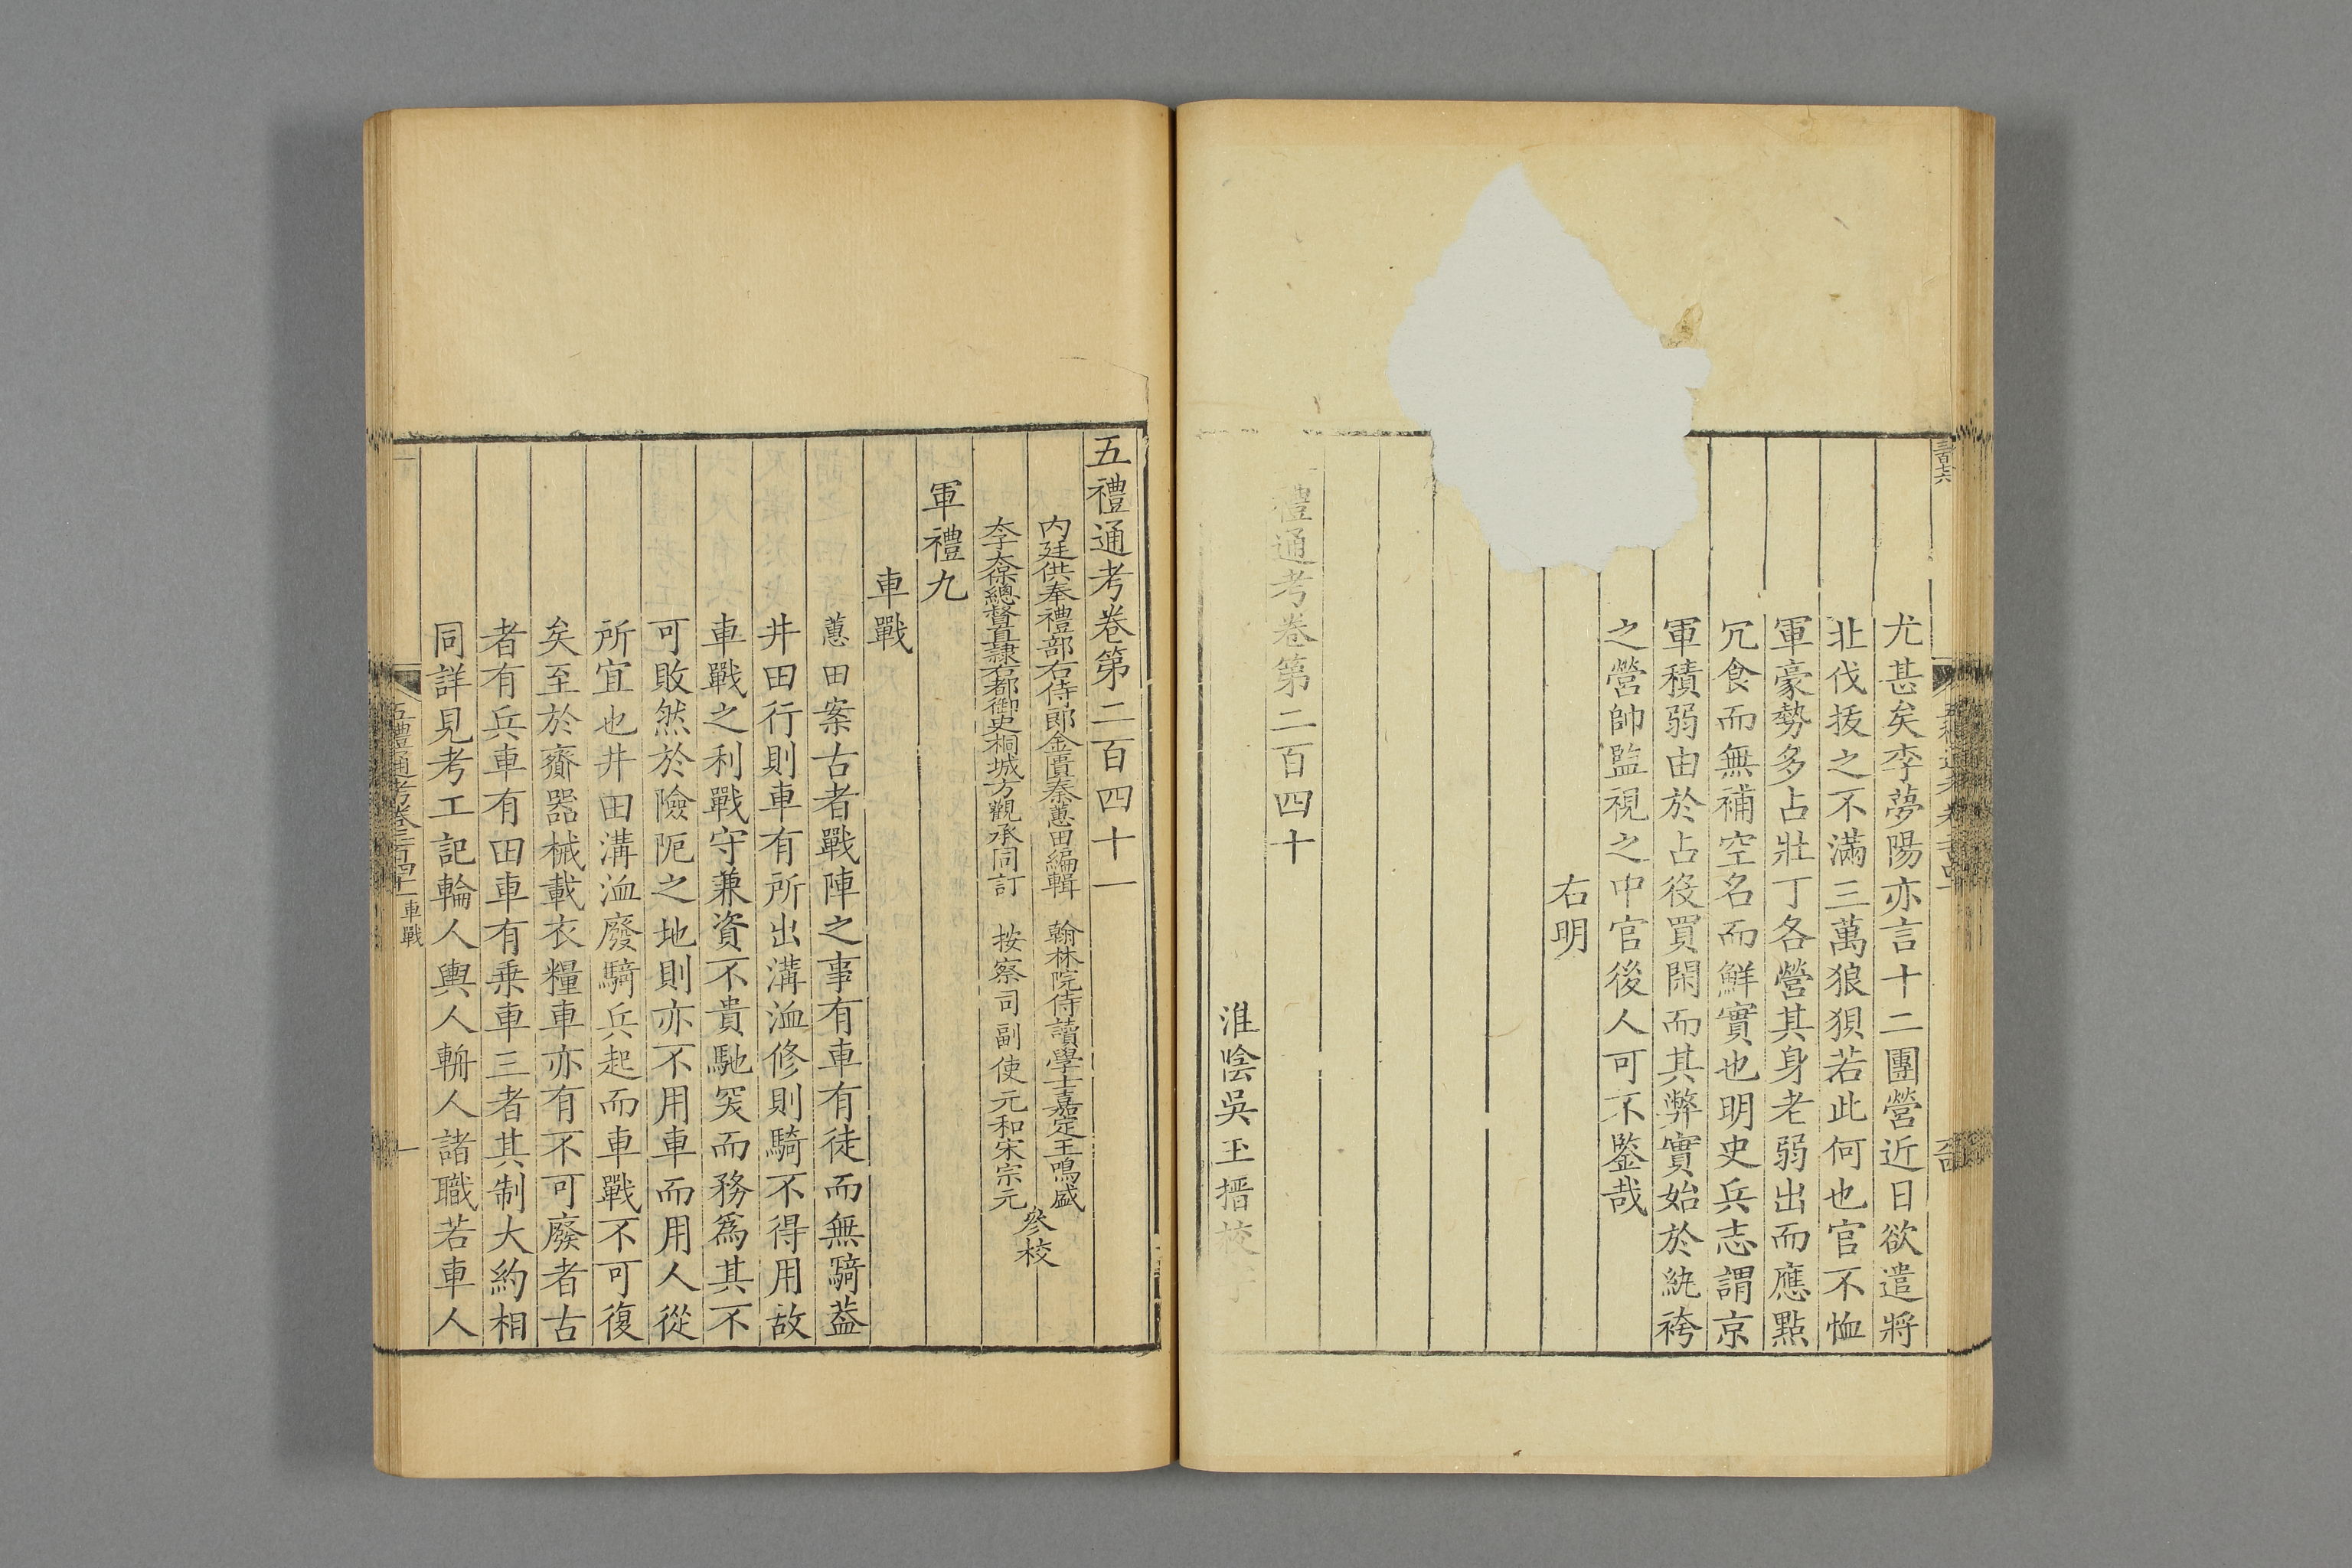 尤甚矣李夢陽亦言十二團營近日欲遣將
北伐拔之不滿三萬狼狽若此何也官不恤
軍豪勢多占壯丁各營其身老弱出而應點
冗食而無補空名而鮮實也明史兵志謂京
軍積弱由於占役買閑而其弊實始於紈袴
之營帥監視之中官後人可不鑒哉
右明
禮通考卷第二百四十
淮陰吳玉搢校
五禮通考卷第二百四十一
內廷供奉禮部右侍郎金匱秦蕙田編輯 翰林院侍讀學士嘉定王鳴盛
太子太保總督直隸右都御史桐城方觀承同訂 按察司副使元和宋宗元
參校
軍禮九
車戰
蕙田案古者戰陣之事有車有徒而無騎葢
井田行則車有所出溝洫修則騎不得用故
車戰之利戰守兼資不貴馳突而務為其不
可敗然於險阨之地則亦不用車而用人從
所宜也井田溝洫廢騎兵起而車戰不可復
矣至於齎器械載衣糧車亦有不可廢者古
者有兵車有田車有乘車三者其制大約相
同詳見考工記輪人輿人輈人諸職若車人
五禮通考卷二百四十一 車戰
一